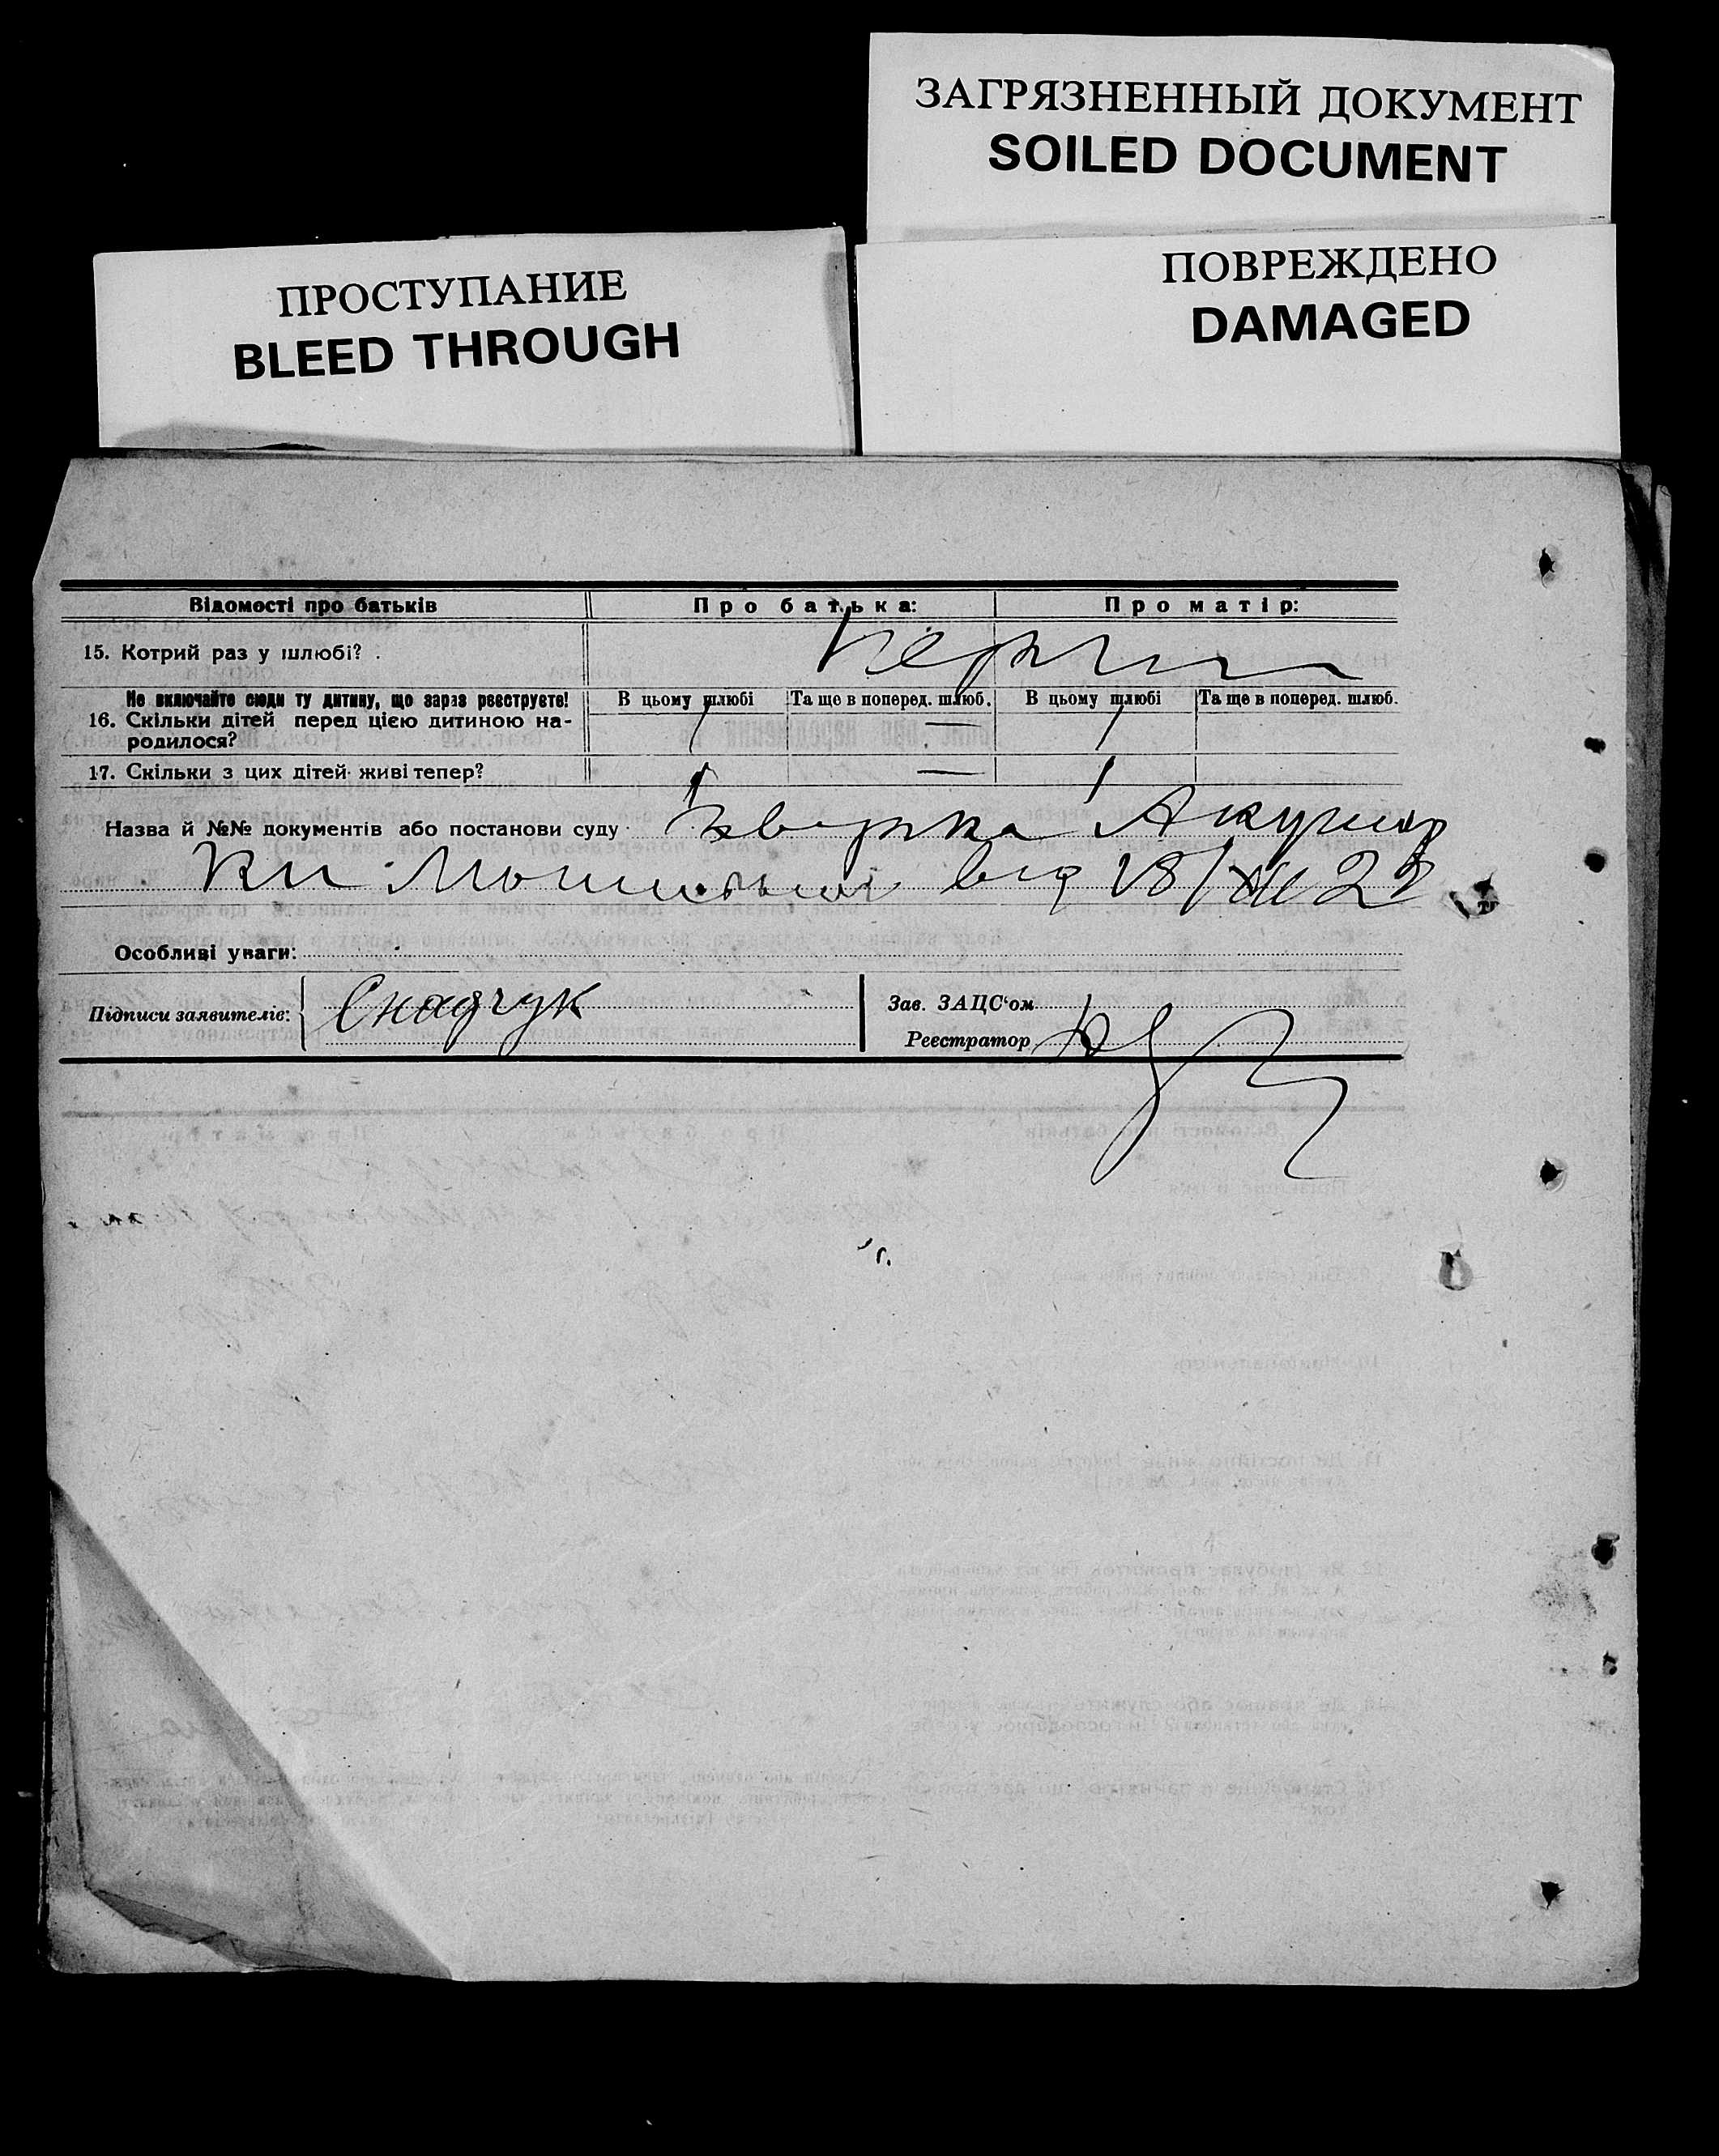 ЗАГРЯЗНЕННЫЙ ДОКУМЕНТ
SOILED DOCUMENT
ПРОСТУПАНИЕ
BLEED THROUGH
ПОВРЕЖДЕНО
DAMAGED
Відомості про батьків Про батька: Про матір:
15. Котрий раз у шлюбі? Перший
Не включайте сюди ту дитину, що зараз реєструєте! В цьому шлюбі Та ще в поперед. шлюб. В цьому шлюбі Та ще в поперед. шлюб.
16. Скільки дітей перед цією дитиною на-
родилося? 1 — 1
17. Скільки з цих дітей живі тепер? 1 — 1
Назва й №№ документів або постанови суду Акушер
ки від 18/
Особливі уваги:
Підписи заявителів: Снадчук
Зав. ЗАЦС'ом
Реєстратор